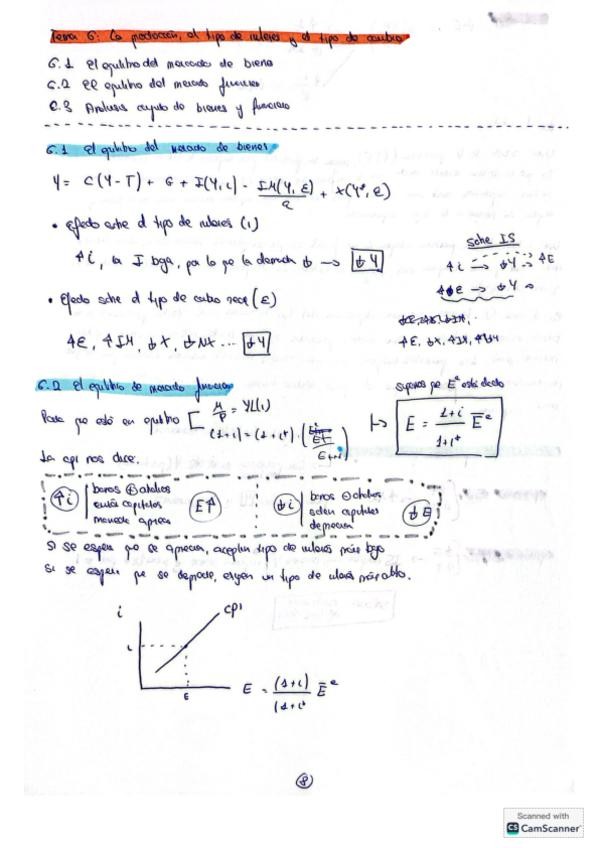 Tema 6: La producción, el tipo de interes y el tipo de cambio
6.1 El equilibrio del mercado de bienes
6.2 El equilibrio del mercado financiero
6.3 Analisis conjunto de bienes y financiero
6.1 El equilibrio del mercado de bienes
Y = C(Y-T) + G + I(Y,i) - IM(Y,E)/E + X(Y*,E)
• efecto sobre el tipo de interes (i)
↑i, la I baja, por lo que la demanda ↓ → ↓Y
sobre IS
↑i → ↓Y → ↑E
→ ↓Y
• Efecto sobre el tipo de cambio real (E)
↑E, ↑IM, ↓X, ↓NX ... ↓Y
↑E, ↓X, ↑IM,
6.2 El equilibrio de mercado financiero
Para que esté en equilibrio [ M/P = YL(i)
(1+i) = (1+i*) ·
supones que
E = 1+i / 1+i* Ē^e
La cpi nos dice:
↑i | bonos ⊕ atractivos
capitales
moneda aprecia
E↑
↓i | bonos ⊖ atractivos
salen capitales
deprecian
↓E
Si se espera que se aprecian, aceptan tipo de interés más bajo
Si se espera que se deprecie, exigen un tipo de interés más alto.
i
cpi
i
E
E = (1+i) / (1+i* Ē^e
8
Scanned with
CS CamScanner